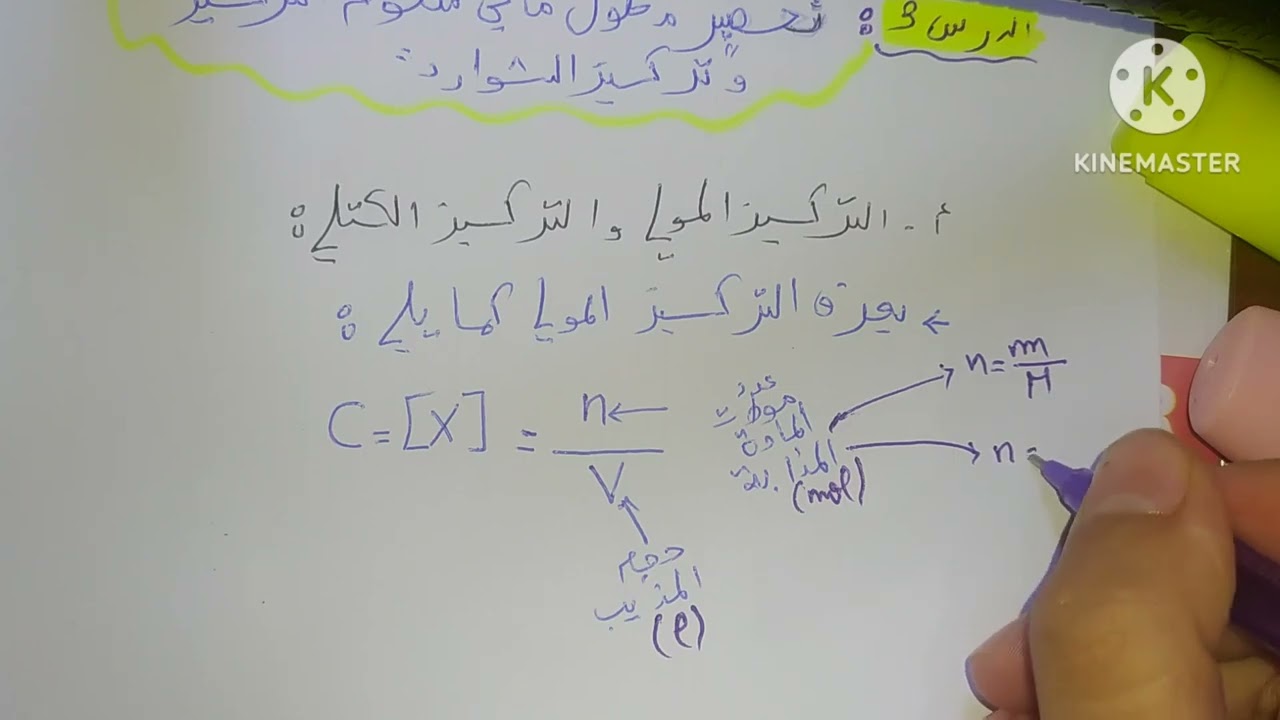 الدرس 3 : تحضير محلول مائي معلوم التركيز
و تركيز الشوارد :
KINEMASTER
أ - التركيز المولي و التركيز الكتلي :
← يعرف التركيز المولي كما يلي :
C = [X] = n / V
عدد
مولات
المادة
المذابة
(mol)
n = m / M
n =
حجم
المذيب
(l)